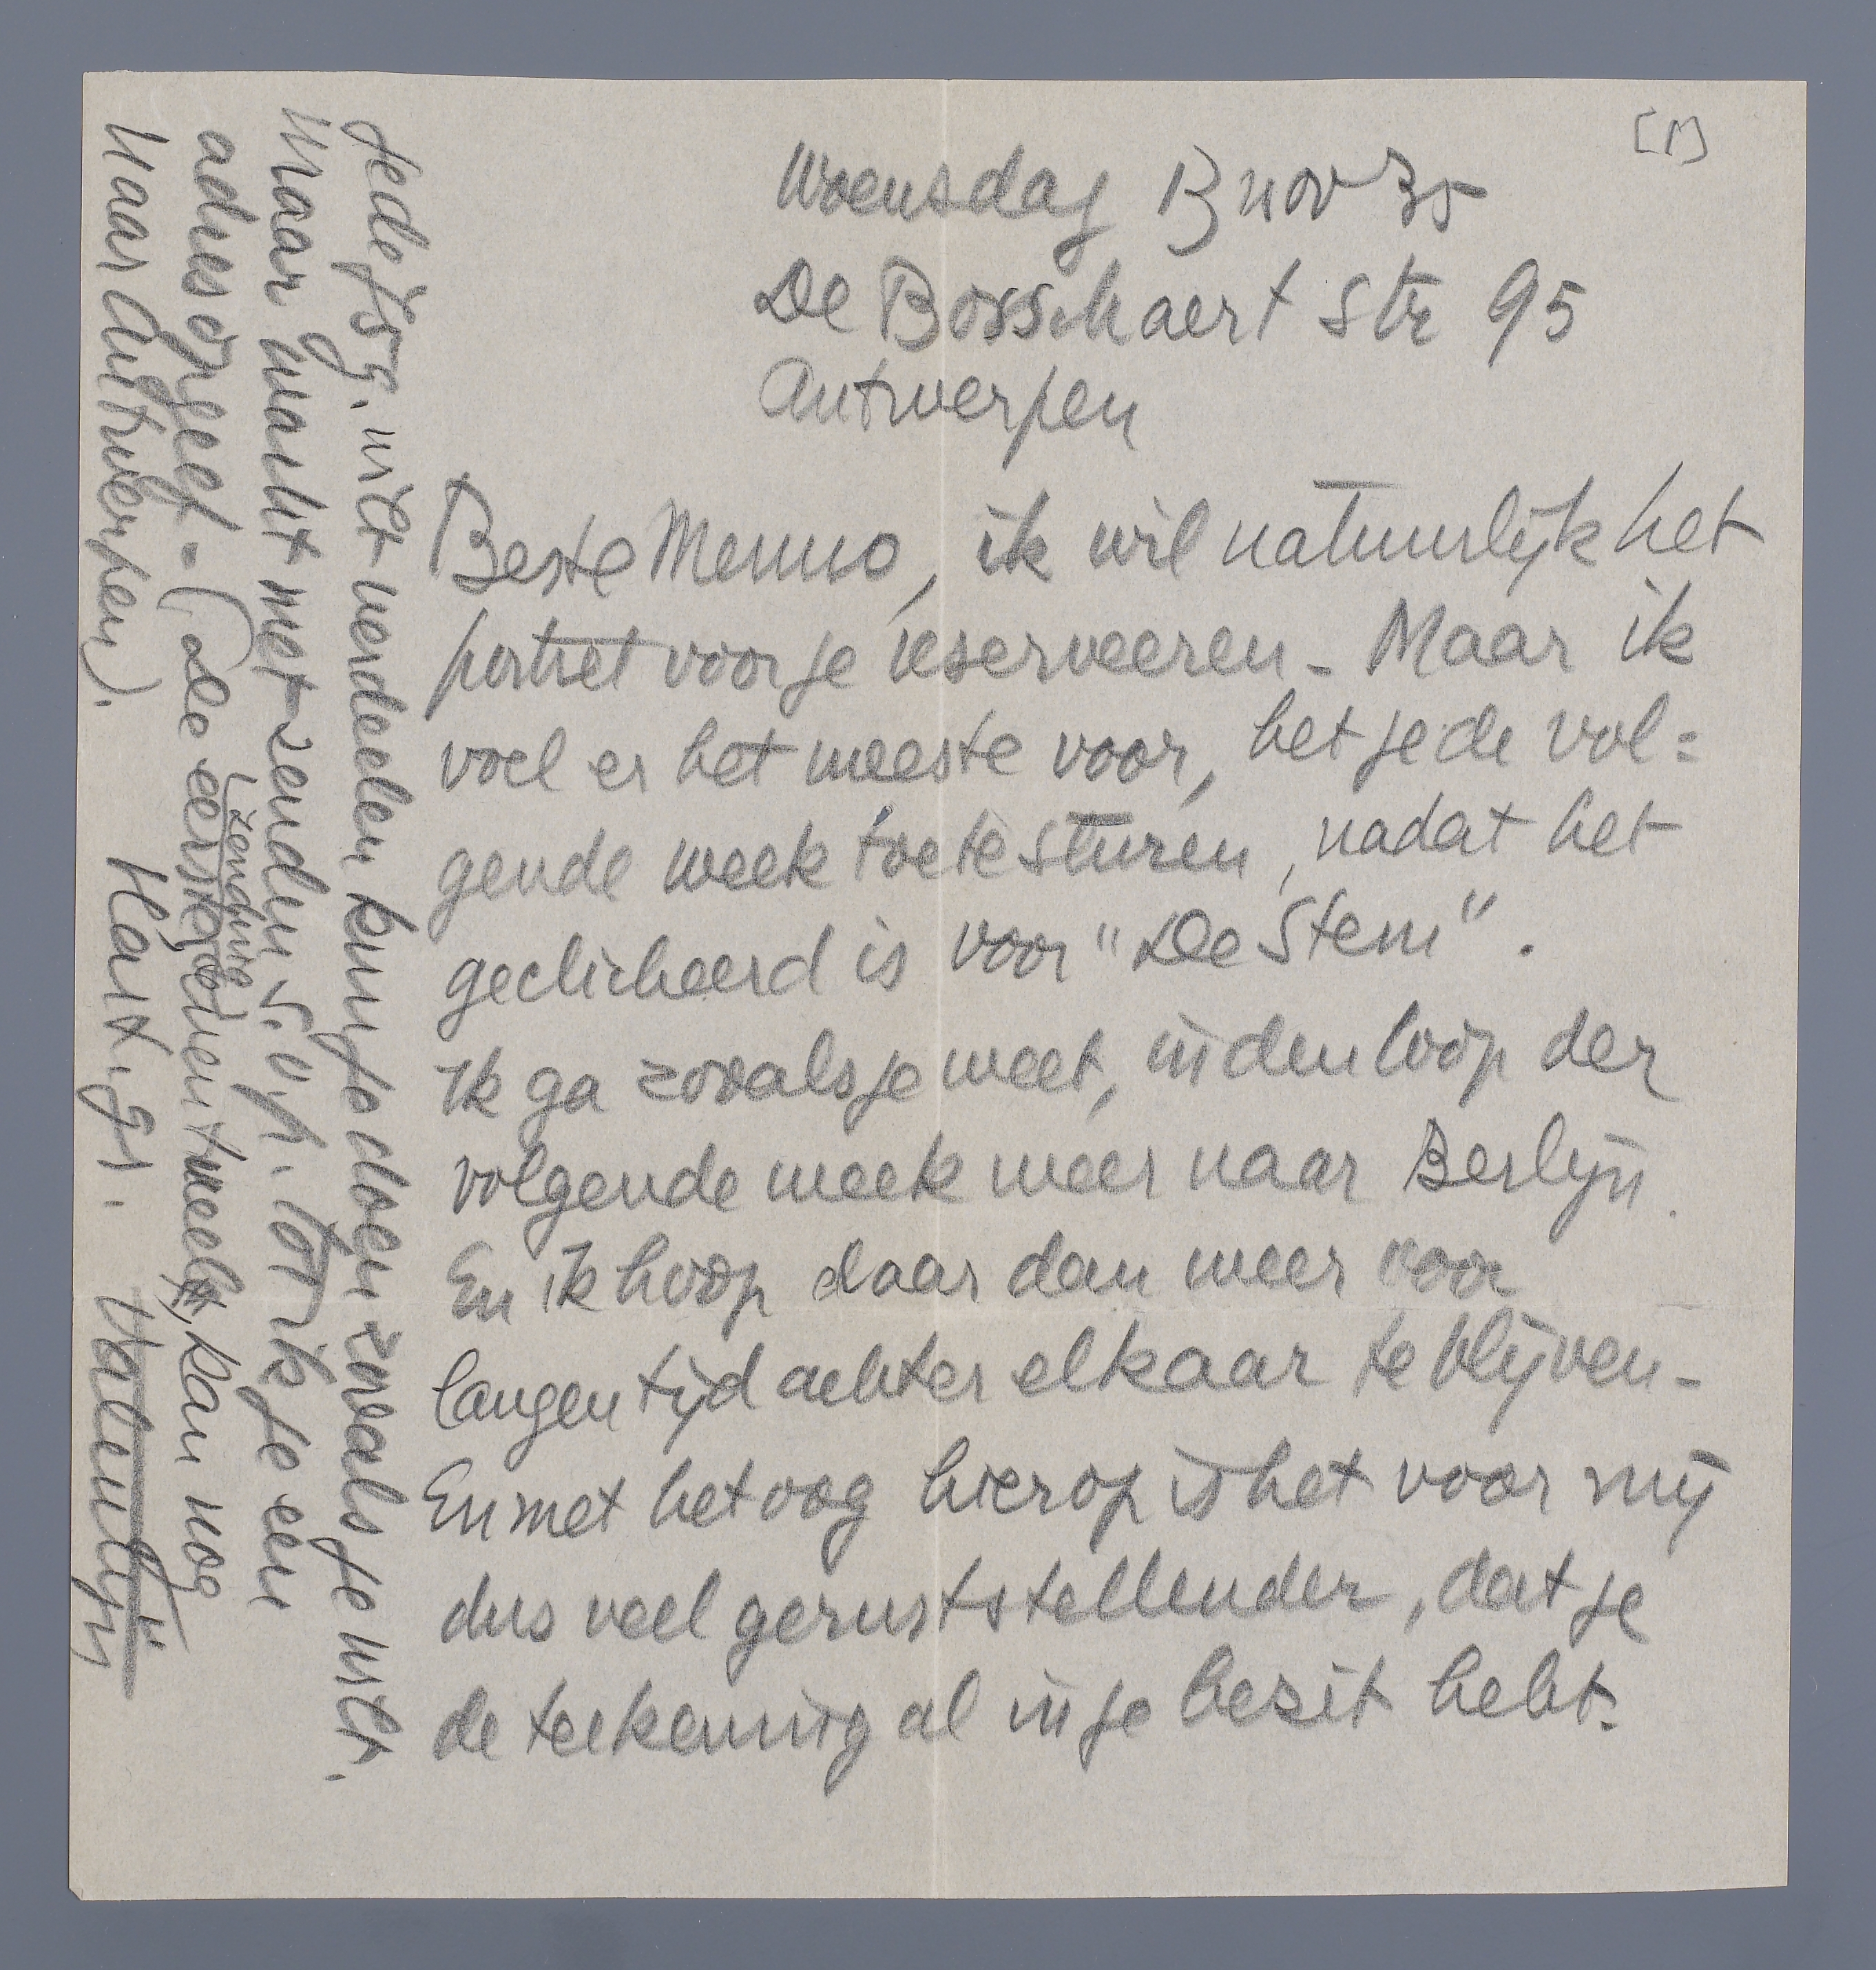 [1]
Woensdag 13 nov 35
De Bosschaert Str 95
Antwerpen
Beste Menno, ik wil natuurlijk het
portret voor je reserveeren - Maar ik
voel er het meeste voor, het je de vol=
gende week toe te sturen, nadat het
geclicheerd is voor "De Stem".
Ik ga zooals je weet, in den loop der
volgende week weer naar Berlijn.
En ik hoop daar dan weer voor
langen tijd achter elkaar te blijven -
En met het oog hierop is het voor mij
dus veel geruststellender, dat je
de teekening al in je bezit hebt.
Je de f 50, niet verdeelen kun je doen zooals je wilt.
Maar wacht met zenden s.v.p. tot ik je een
adres opgeef - (de eerstkomende week, kan nog
zending
naar Antwerpen).
Hart. gr. Valentijn